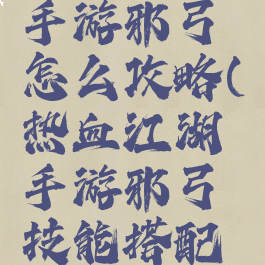 手游邪弓
怎么攻略(
热血江湖
手游邪弓
技能搭配